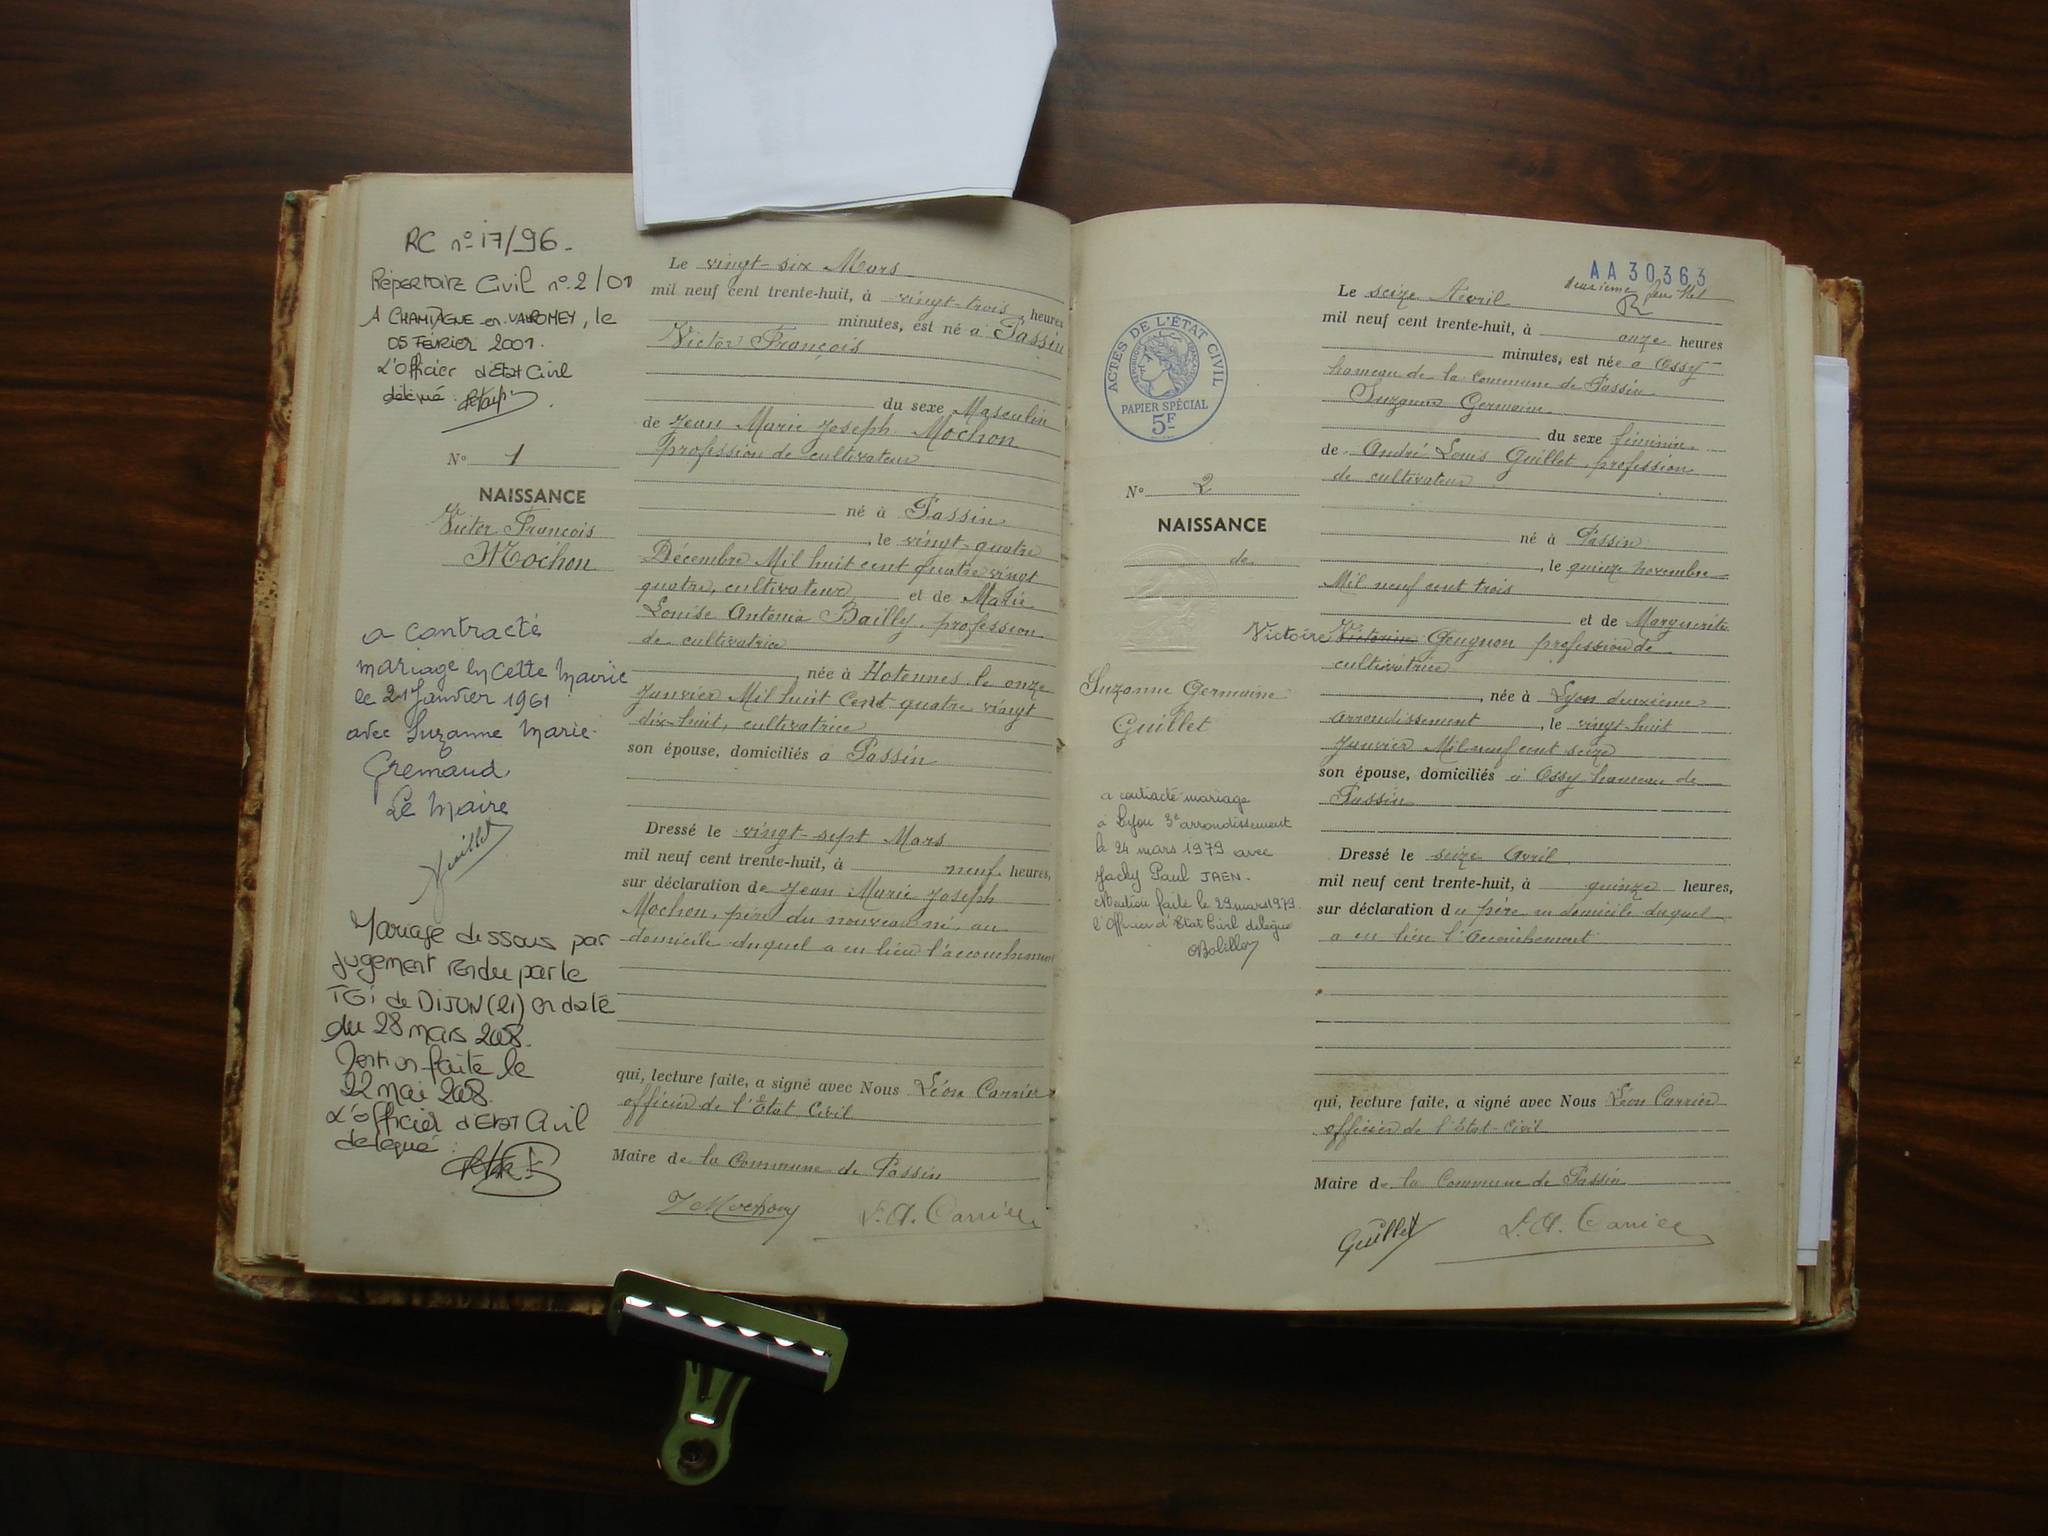 RC n° 17/96.
Répertoire Civil n° 2/01
A CHAMPAGNE-en-VALROMEY, le
05 Février 2001.
L'Officier d'Etat Civil
délégué:
N° 1
NAISSANCE
de
Victor François
Mochon
a contracté
mariage en cette mairie
le 21 Janvier 1961
avec Suzanne Marie
Gremaud.
Le Maire
Guillet
Mariage dissous par
jugement rendu par le
TGI de DIJON (21) en date
du 28 mars 2008.
Mention faite le
22 mai 2008.
L'officier d'Etat Civil
délégué:
Le vingt-six Mars
mil neuf cent trente-huit, à vingt-trois heures
minutes, est né à Passin
Victor François
du sexe Masculin
de Jean Marie Joseph Mochon
profession de cultivateur
né à Passin
, le vingt-quatre
Décembre Mil huit cent quatre vingt
quatre, cultivateur et de Marie
Louise Antonia Bailly, profession
de cultivatrice
, née à Hotonnes, le onze
Janvier Mil huit Cent quatre vingt
dix-huit, cultivatrice
son épouse, domiciliés à Passin
Dressé le vingt-sept Mars
mil neuf cent trente-huit, à neuf heures,
sur déclaration de Jean Marie Joseph
Mochon, père du nouveau né, au
domicile duquel a eu lieu l'accouchement
qui, lecture faite, a signé avec Nous Léon Carrier
officier de l'Etat Civil
Maire de la Commune de Passin
J Mochon L. A. Carrier
AA 30363
deuxième
ACTES DE L'ÉTAT CIVIL
RÉPUBLIQUE FRANÇAISE
PAPIER SPÉCIAL
5F
N° 2
NAISSANCE
de
Suzanne Germaine
Guillet
a contracté mariage
à Lyon 3e arrondissement
le 24 mars 1979 avec
Jacky Paul JAEN.
Mention faite le 29 mars 1979
l'Officier d'Etat Civil délégué
Le seize Avril
mil neuf cent trente-huit, à onze heures
minutes, est née à Ossy
hameau de la Commune de Passin
Suzanne Germaine
du sexe féminin
de André Louis Guillet, profession
de cultivateur
né à Passin
, le quinze novembre
Mil neuf cent trois
et de Marguerite
Victoire Victorine Gengnon profession de
cultivatrice
, née à Lyon deuxième
arrondissement, le vingt-huit
Janvier Mil neuf cent seize
son épouse, domiciliés à Ossy hameau de
Passin
Dressé le seize Avril
mil neuf cent trente-huit, à quinze heures,
sur déclaration du père au domicile duquel
a eu lieu l'Accouchement
qui, lecture faite, a signé avec Nous Léon Carrier
officier de l'Etat-Civil
Maire de la Commune de Passin
Guillet L. A. Carrier